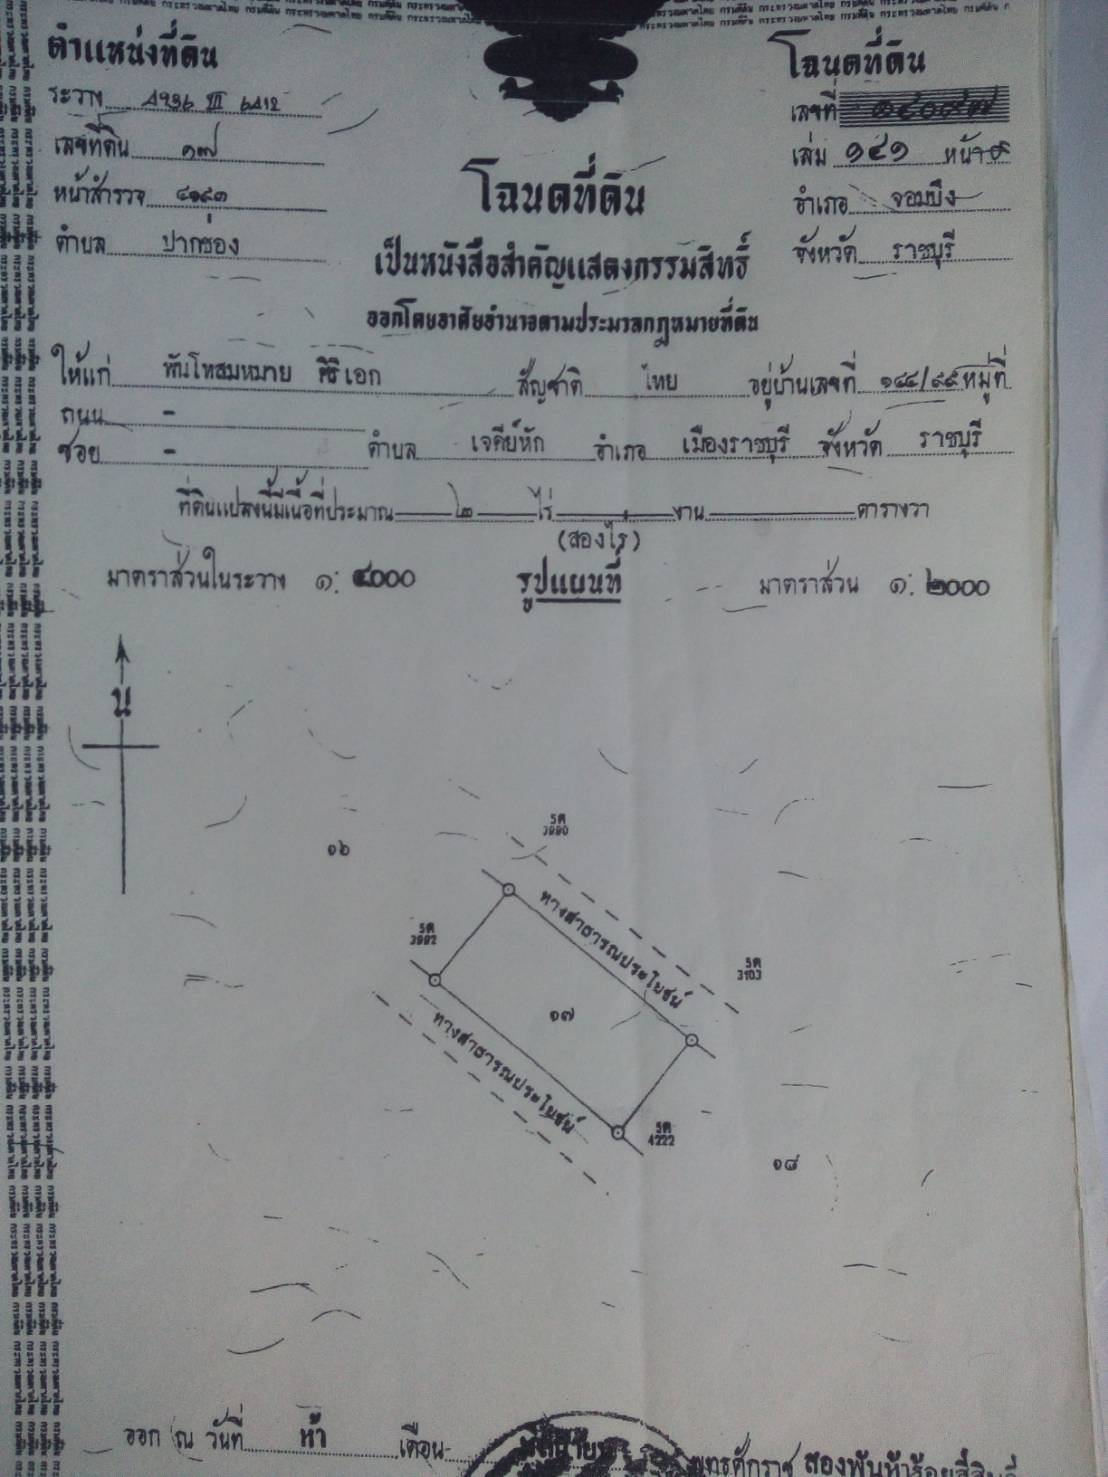 ตำแหน่งที่ดิน
ระวาง 4936 III 6412
เลขที่ดิน ๑๗
หน้าสำรวจ
ตำบล ปากช่อง
โฉนดที่ดิน
เลขที่
เล่ม ๑๔๑ หน้า
อำเภอ จอมบึง
จังหวัด ราชบุรี
โฉนดที่ดิน
เป็นหนังสือสำคัญแสดงกรรมสิทธิ์
ออกโดยอาศัยอำนาจตามประมวลกฎหมายที่ดิน
ให้แก่ พันโทสมหมาย เอก สัญชาติ ไทย อยู่บ้านเลขที่ ๑๔๔/๙๙ หมู่ที่
ถนน -
ซอย - ตำบล เจดีย์หัก อำเภอ เมืองราชบุรี จังหวัด ราชบุรี
ที่ดินแปลงนี้มีเนื้อที่ประมาณ ๒ ไร่ งาน ตารางวา
(สองไร่)
มาตราส่วนในระวาง ๑: ๔000 รูปแผนที่ มาตราส่วน ๑: ๒000
น
รศ
3990
๑๖
ทางสาธารณประโยชน์
รศ
3992
รศ
3103
๑๗
ทางสาธารณประโยชน์
รศ
4222
๑๘
ออก ณ วันที่ ห้า เดือน พุทธศักราช สองพันห้าร้อยสี่สิบ